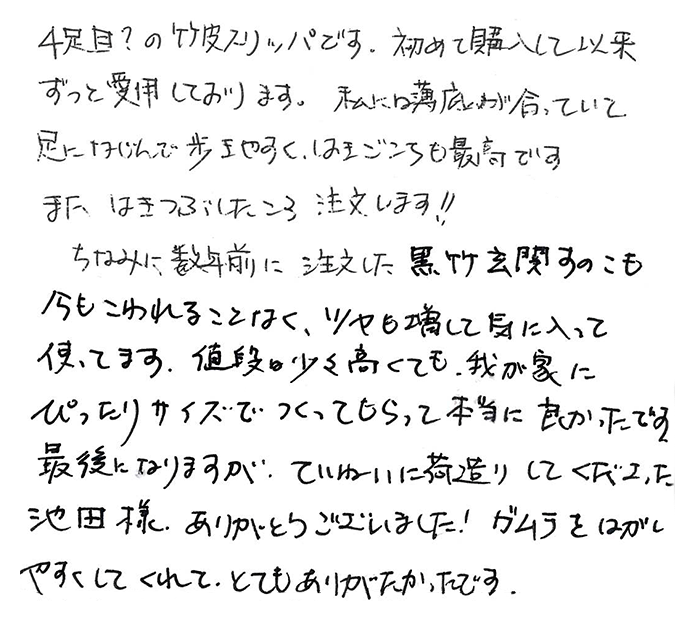 4足目?の竹皮スリッパです.初めて購入して以来
ずっと愛用しております。私には薄底が合っていて
足になじんで歩きやすく、はきごこちも最高です
また はきつぶしたころ 注文します!!
ちなみに数年前に注文した黒竹玄関すのこも
今もこわれることなく、ツヤも増して気に入って
使ってます.値段は少々高くても.我が家に
ぴったりサイズでつくってもらって本当に良かったです
最後になりますが.ていねいに荷造りしてくださった
池田様.ありがとうございました!ガムテをはがし
やすくしてくれて.とてもありがたかったです.